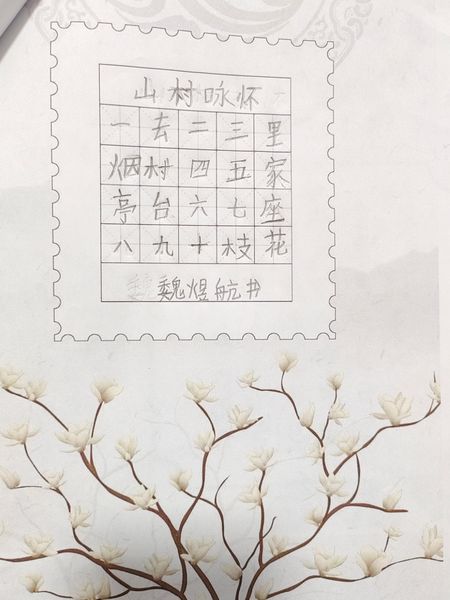 山村咏怀
一去二三里
烟村四五家
亭台六七座
八九十枝花
魏煜航书